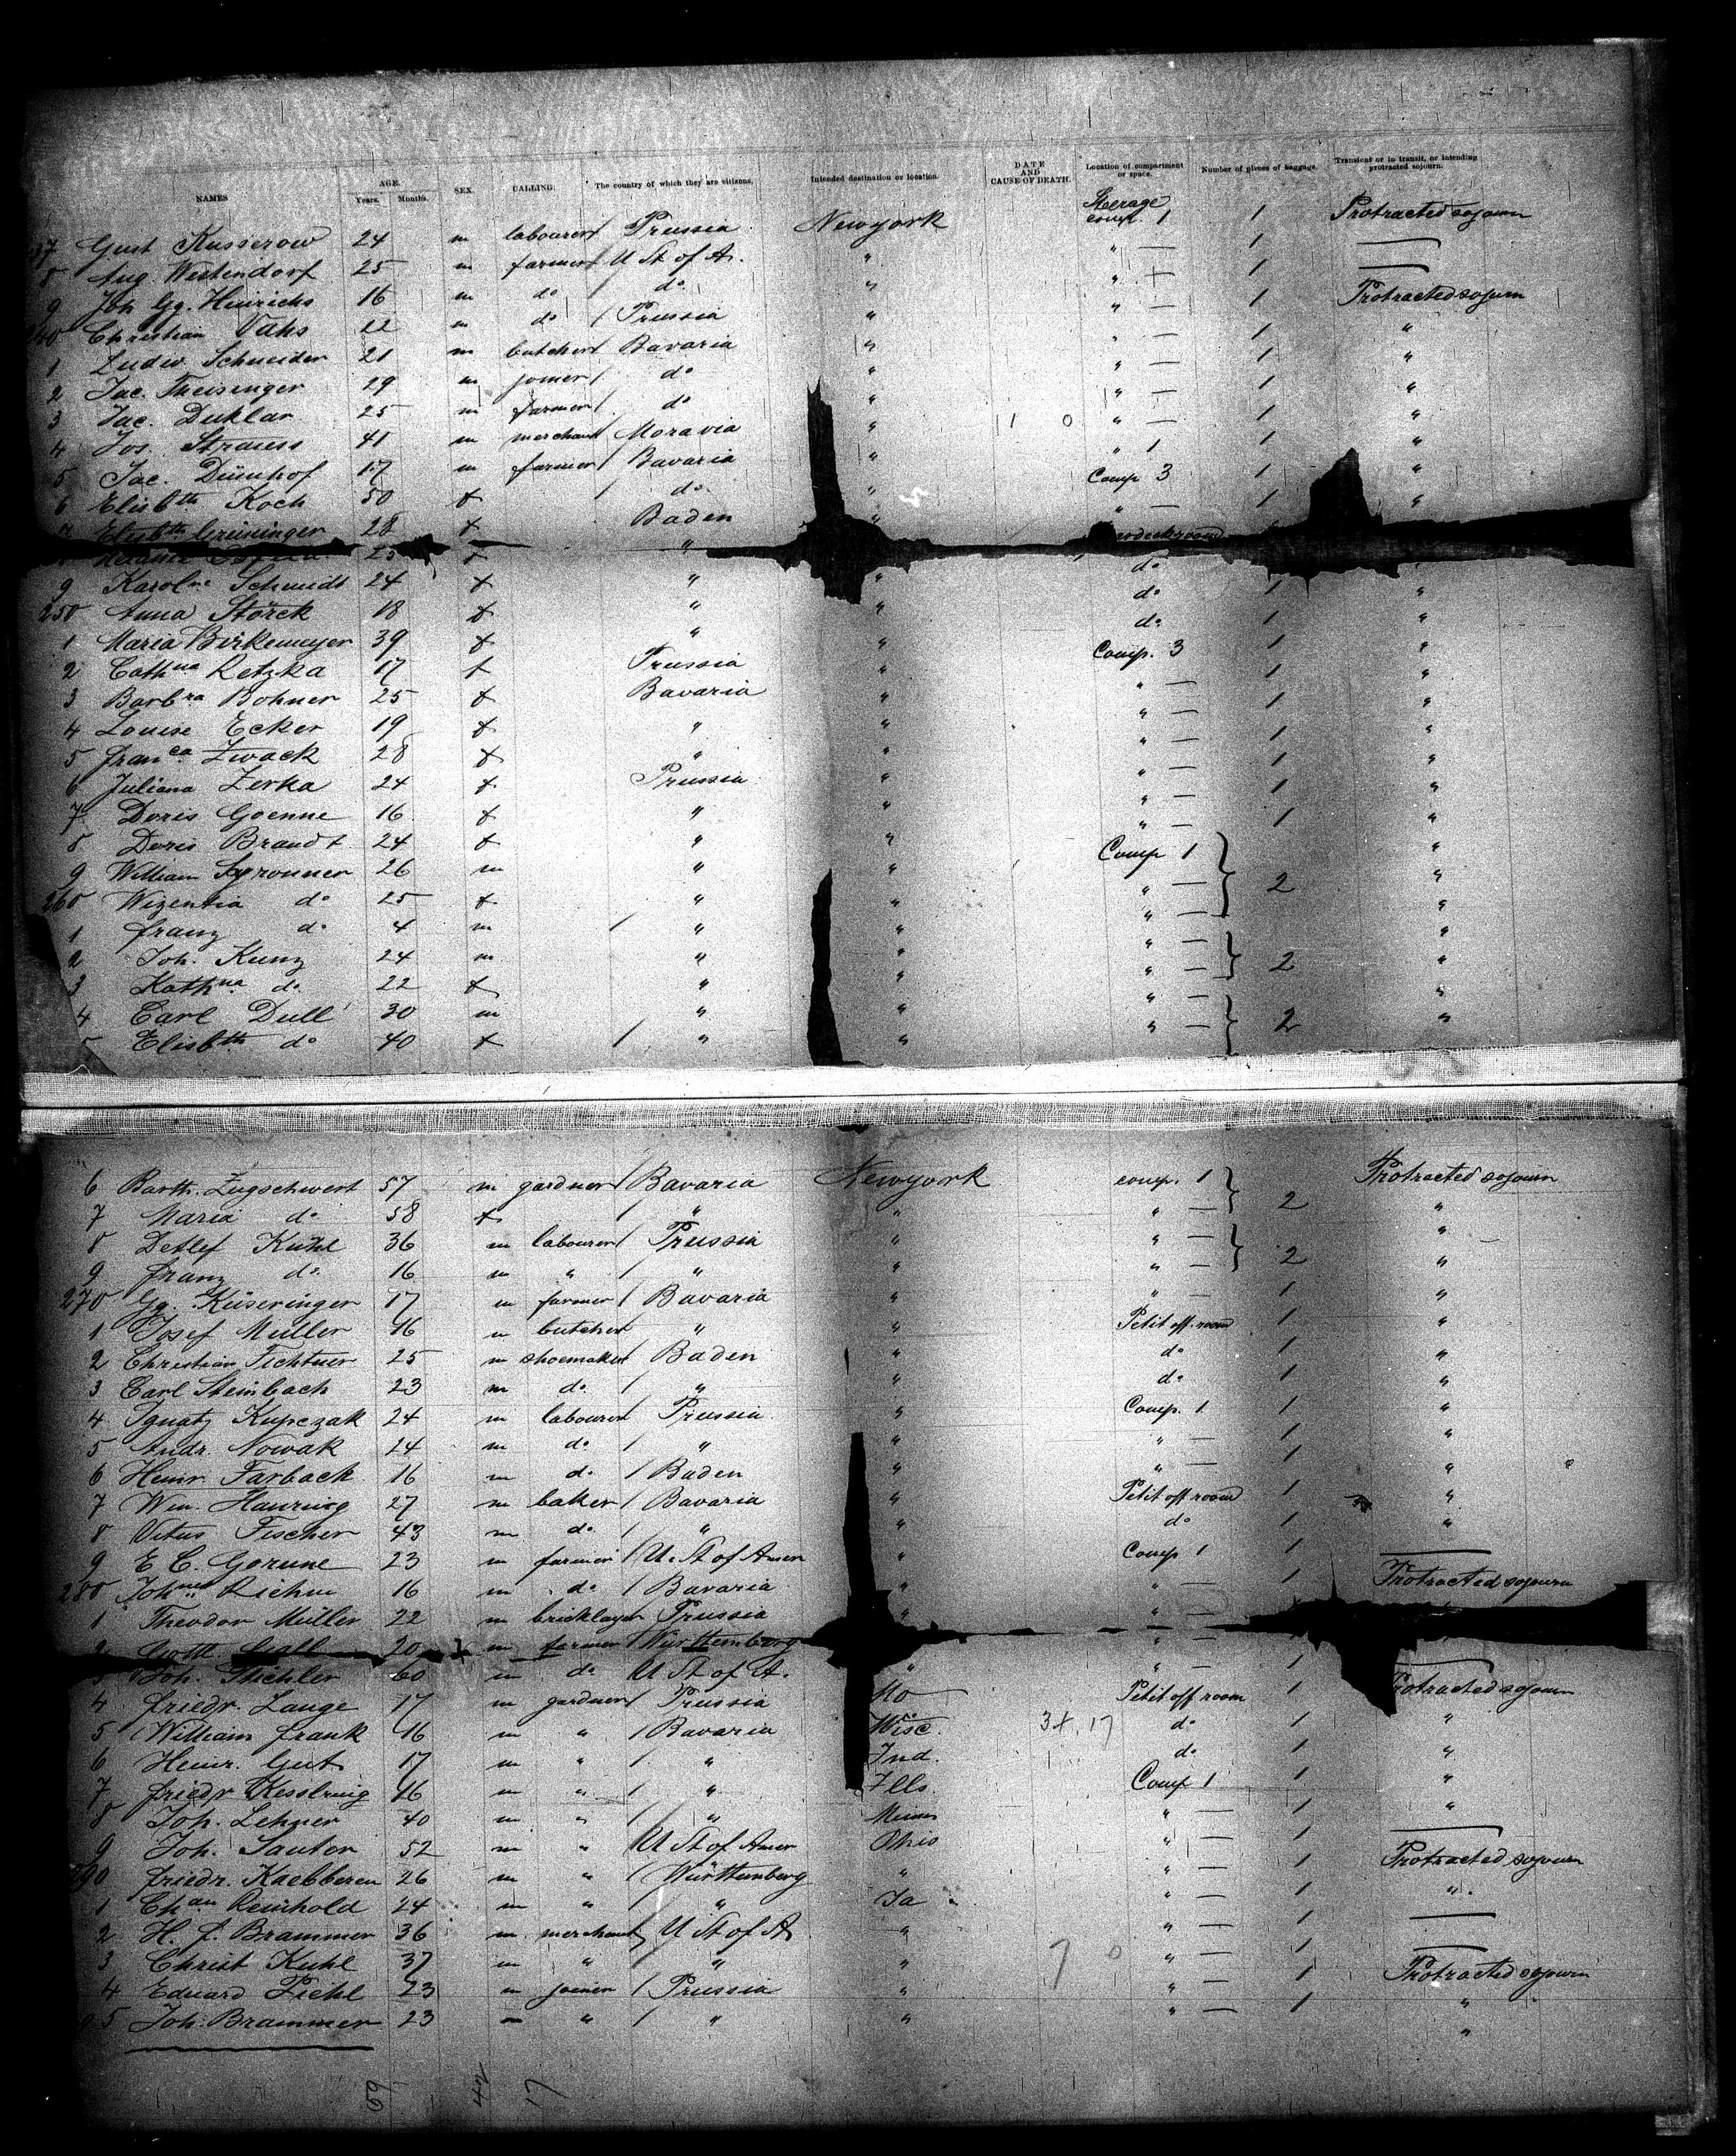 NAMES AGE. Years. Months. SEX. CALLING. The country of which they are citizens. Intended destination or location. DATE AND CAUSE OF DEATH. Location of compartment or space. Number of pieces of baggage. Transient or in transit, or intending protracted sojourn.
37 Gust Kusserow 24 m labourer Prussia Newyork Steerage comp. 1 1 Protracted sojourn
8 Aug. Westendorf 25 m farmer U St of A. " " — 1 —
9 Joh Gg. Hinrichs 16 m do do " " — 1 —
240 Christian Vahs 22 m do Prussia " " — 1 Protracted sojourn
1 Ludw Schneider 21 m butcher Bavaria " " — 1 "
2 Jac. Theisinger 29 m joiner do " " — 1 "
3 Jac. Duklar 25 m farmer do " " — 1 "
4 Jos. Strauss 41 m merchant Moravia " " — 1 "
5 Jac. Dümhof 17 m farmer Bavaria " " 1 1 "
6 Elisbth Koch 50 f do " Comp 3 1 "
7 Elisbth Grüninger 28 f Baden " " — 1 "
25 f " "
9 Karolne Schmidt 24 f " " do 1 "
250 Anna Störck 18 f " " do 1 "
1 Maria Birkemeyer 39 f " " do 1 "
2 Cathna Retzka 17 f Prussia " Comp. 3 1 "
3 Barbra Bohner 25 f Bavaria " " — 1 "
4 Louise Ecker 19 f " " " — 1 "
5 Franca Zwack 28 f " " " — 1 "
6 Juliana Zerka 24 f Prussia " " — 1 "
7 Doris Goenne 16 f " " " — 1 "
8 Doris Brandt 24 f " " " — 1 "
9 William 26 m " " Comp 1 "
260 Wizentia do 25 f " " " — 2 "
1 Franz do 4 m " " " — "
2 Joh. Kunz 24 m " " " — "
3 Kathna do 22 f " " " — 2 "
4 Carl Dull 30 m " " " — "
5 Elisbth do 40 f " " " — 2 "
6 Barth. Zugschwert 57 m gardner Bavaria Newyork comp. 1 Protracted sojourn
7 Maria do 58 f " " " — 2 "
8 Detlef Kühl 36 m labourer Prussia " " — "
9 Franz do 16 m " " " " — 2 "
270 Gg. Küseringer 17 m farmer Bavaria " " — 1 "
1 Josef Müller 16 m butcher " " Petit off. room 1 "
2 Christian Fichtner 25 m shoemaker Baden " do 1 "
3 Carl Steinbach 23 m do " " do 1 "
4 Ignatz Kupczak 24 m labourer Prussia " Comp. 1 1 "
5 Andr. Nowak 24 m do " " " — 1 "
6 Heinr Farback 16 m do Baden " " — 1 "
7 Wm. 27 m baker Bavaria " Petit off room 1 "
8 Vitus Fischer 43 m do " " do 1 "
9 E C. Gorune 23 m farmer U. St of Amer " Comp 1 1 —
280 Johnes Richm 16 m do Bavaria " " — 1 Protracted sojourn
1 Theodor Müller 22 m bricklayer Prussia " " —
2 Gottl. 20 m farmer Württemberg " —
3 Joh. Stichler 60 m do U St of A. " " — 1 —
4 Friedr. Lange 17 m gardner Prussia Mo Petit off room 1 Protracted sojourn
5 William Frank 16 m " Bavaria Wisc. 3+, 17 do 1 "
6 Heinr. Gut 17 m " " Ind. do 1 "
7 Friedr Kesslring 16 m " " Ills. Comp 1 1 "
8 Joh. Lehner 40 m " " " — 1 "
9 Joh. Sauter 52 m " U St of Amer Ohio " — 1 —
290 Friedr. Kaebberer 26 m " Württemberg " " — 1 Protracted sojourn
1 Chan Reinhold 24 m " " Ia " — 1 "
2 H. F. Brammer 36 m merchant U St of A " " — 1 —
3 Christ Kuhl 37 m " " " 7 0 " — 1 —
4 Eduard Piehl 23 m joiner Prussia " " — 1 Protracted sojourn
5 Joh. Brammer 23 m " " " " — 1 "
59 42 17